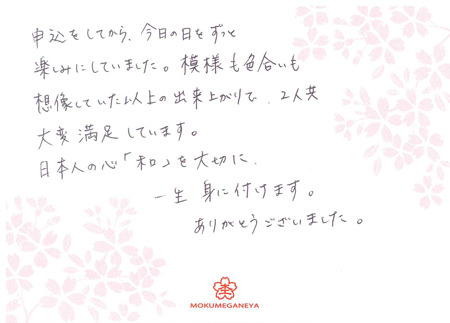 申込をしてから、今日の日をずっと
楽しみにしていました。模様も色合いも
想像していた以上の出来上がりで、2人共
大変満足しています。
日本人の心「和」を大切に、
一生 身に付けます。
ありがとうございました。
MOKUMEGANEYA